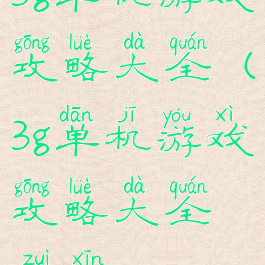 3g单机游戏
gōng lüè dà quán
攻略大全（
dān jī yóu xì
3g单机游戏
gōng lüè dà quán
攻略大全
zuì xīn